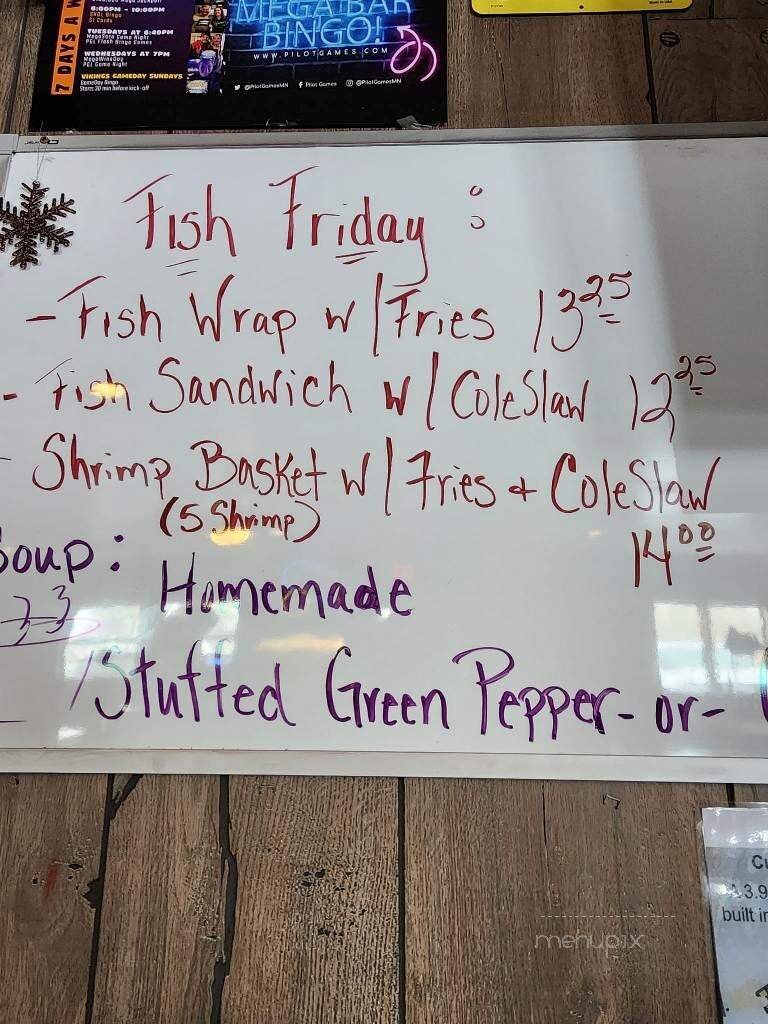 7 DAYS A W
6:00PM - 10:00PM
SKOL Bingo
$1 Cards
TUESDAYS AT 6:40PM
MegaSota Game Night
PGL Flash Bingo Games
WEDNESDAYS AT 7PM
PGL Game Night
VIKINGS GAMEDAY SUNDAYS
GameDay Bingo
Starts 30 min before kick-off
MEGA BAR
BINGO!
WWW.PILOTGAMES.COM
@PilotGamesMN Pilot Games @PilotGamesMN
Fish Friday:
- Fish Wrap w/Fries 13 25
- Fish Sandwich w/ColeSlaw 12 25
- Shrimp Basket w/Fries + ColeSlaw
(5 Shrimp)
14 00
Soup: Homemade
Stuffed Green Pepper -or-
3.9
built in
menupix